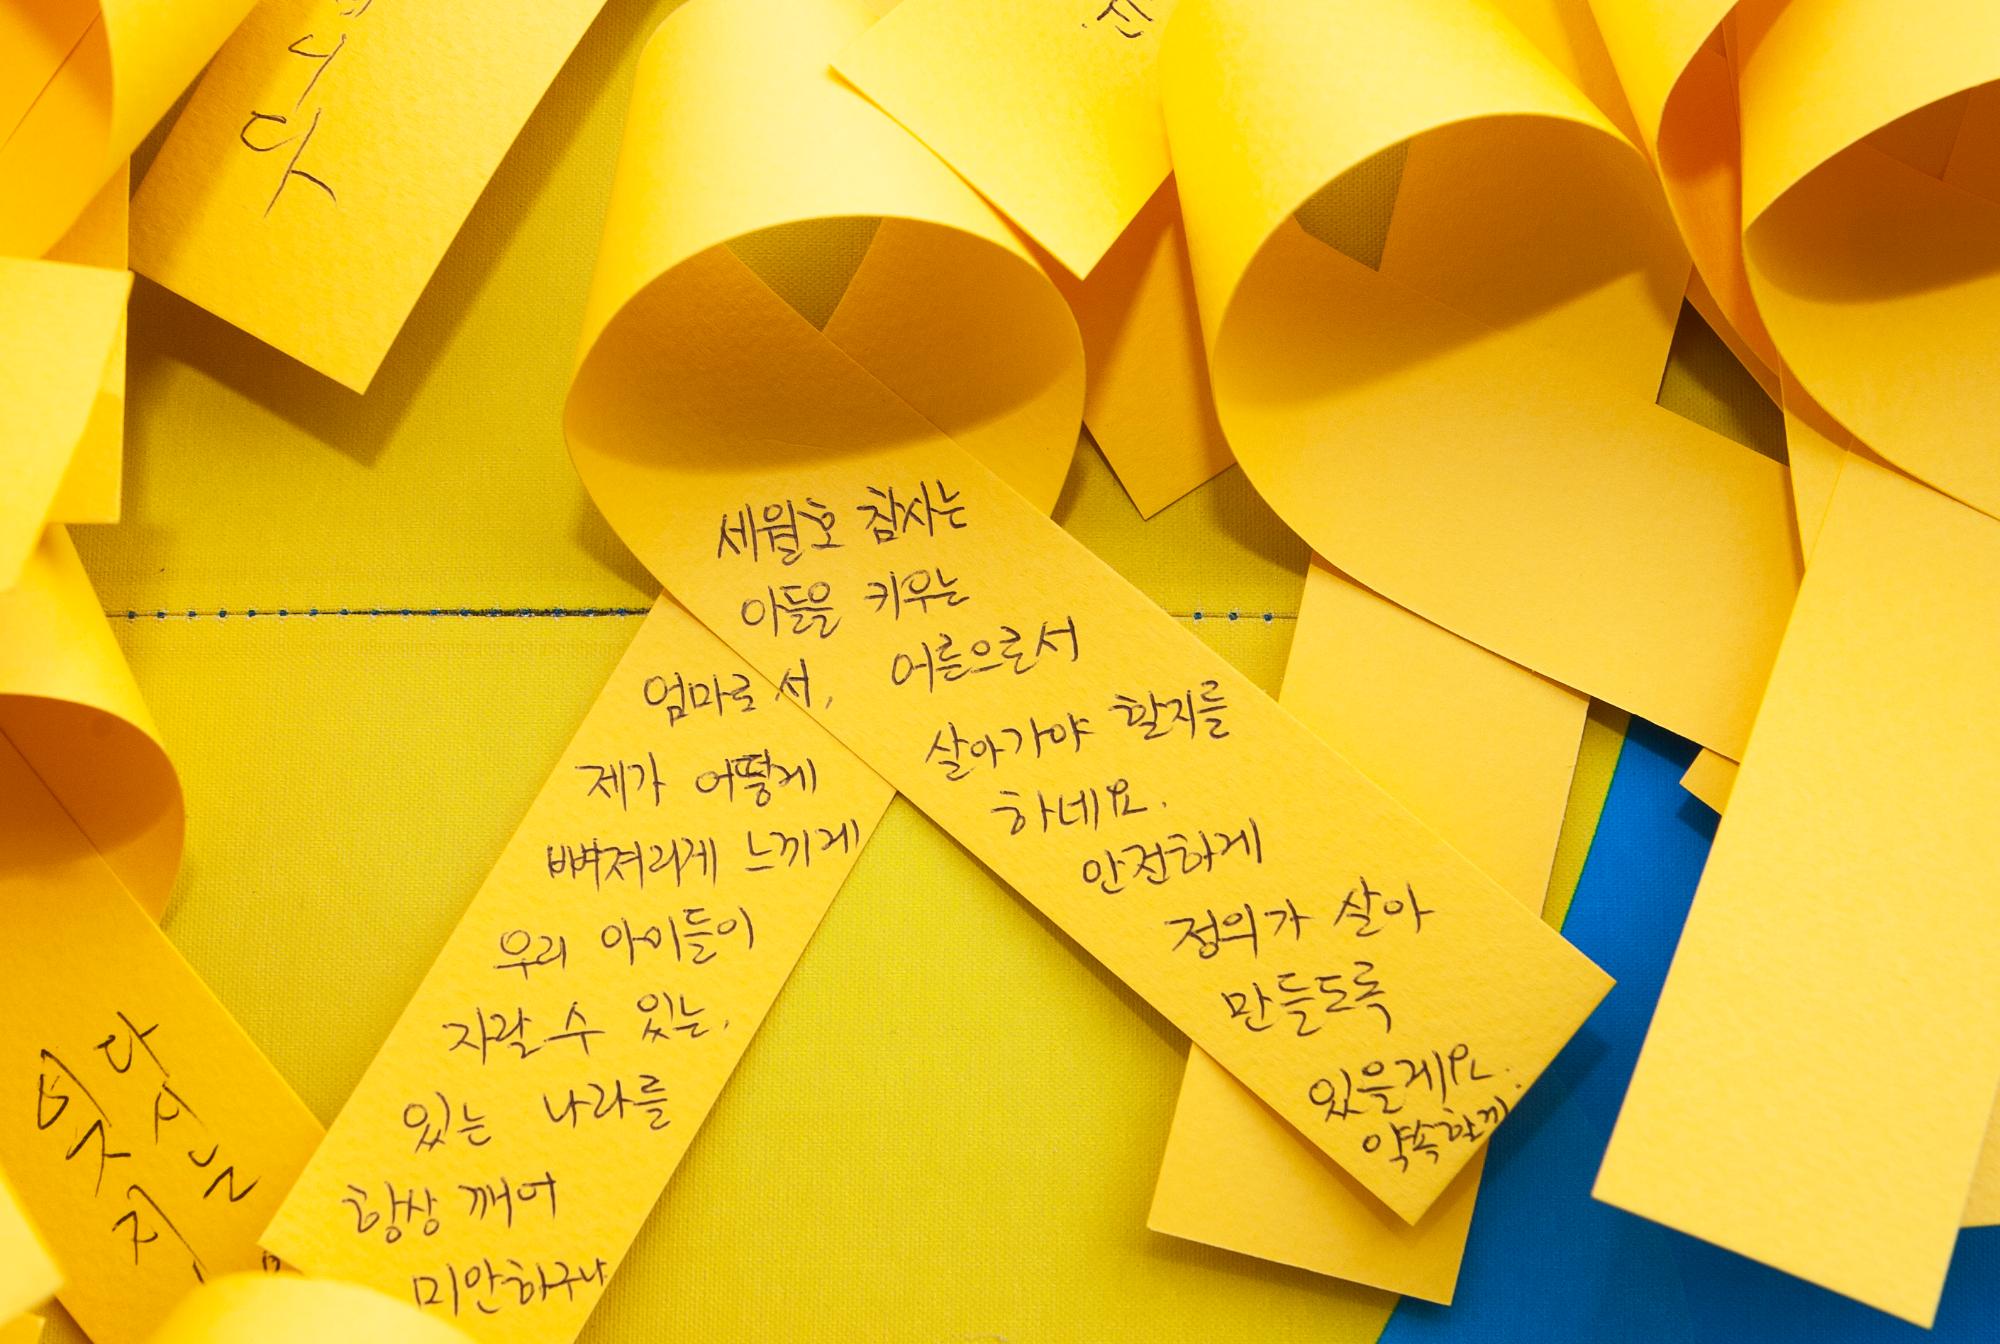 니
다
세월호 참사는
아들을 키우는
엄마로서, 어른으로서
제가 어떻게 살아가야 할지를
뼈져리게 느끼게 하네요.
안전하게
우리 아이들이 정의가 살아
자랄 수 있는, 만들도록
있는 나라를
항상 깨어 있을게요.
미안하구나 약속할게
다시는
잊지